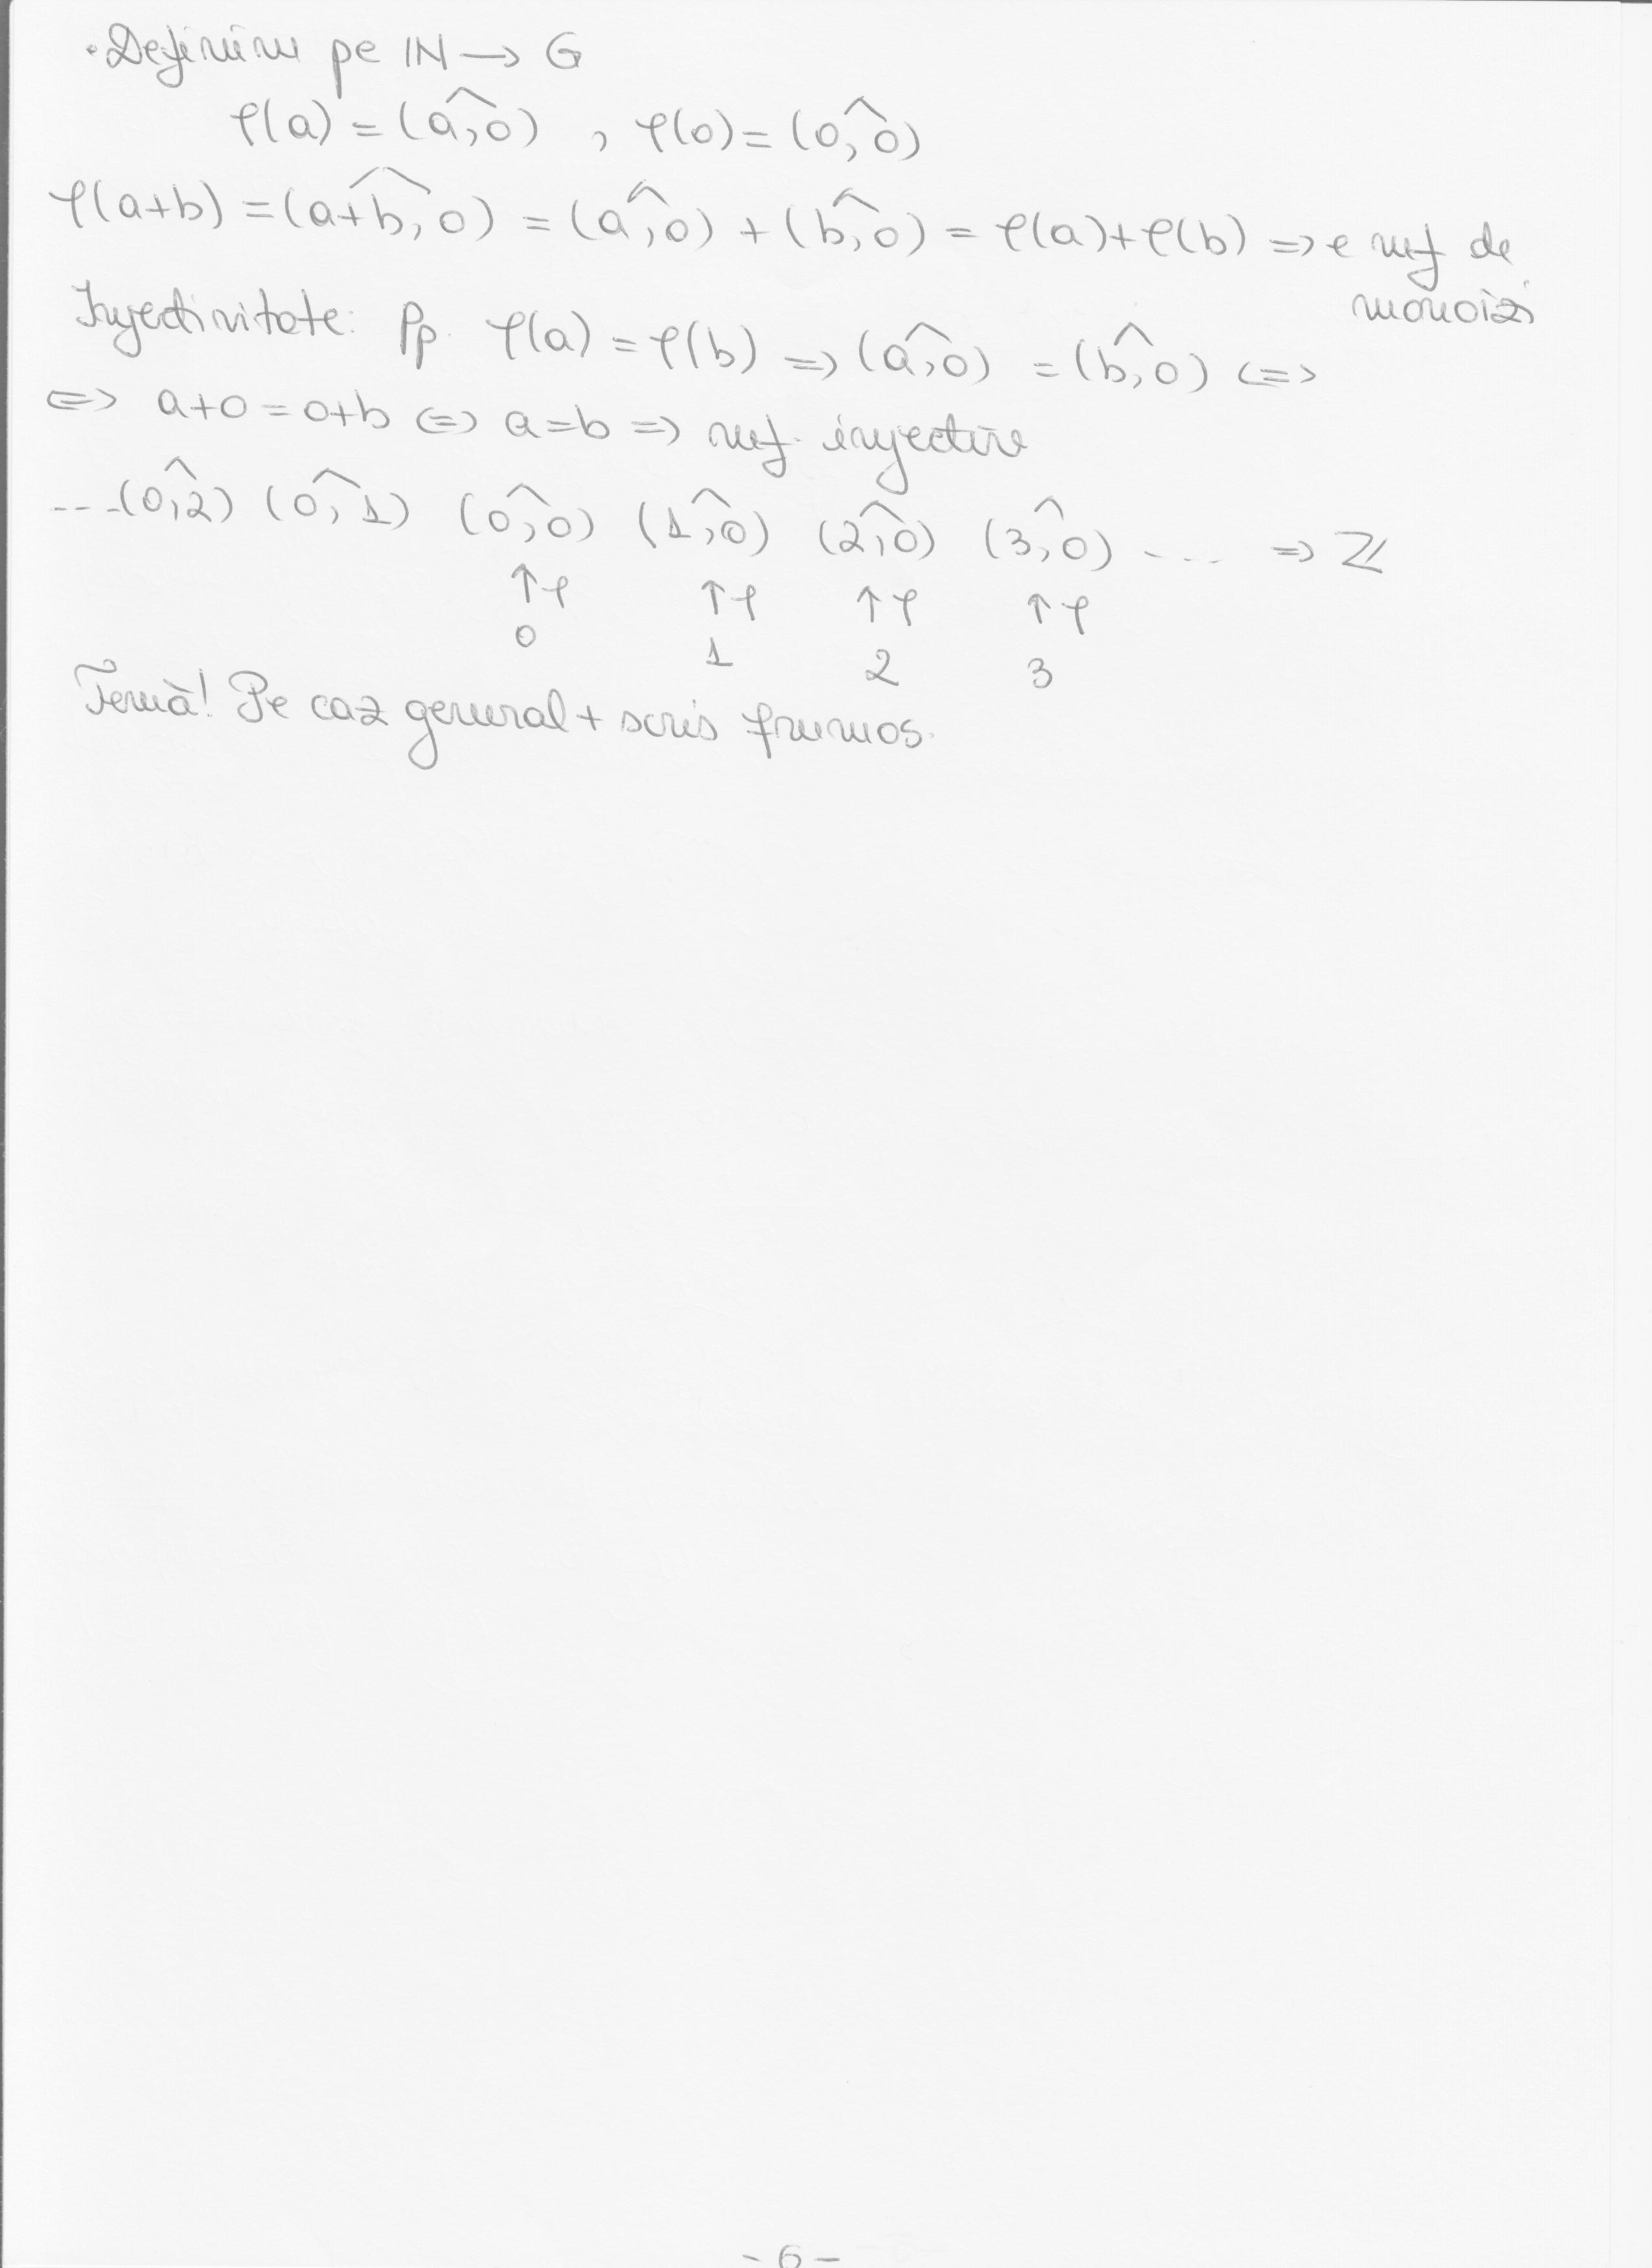 • Definim pe ℕ → G
φ(a) = (a,0)^ , φ(0) = (0,0)^
φ(a+b) = (a+b,0)^ = (a,0)^ + (b,0)^ = φ(a)+φ(b) => e mf de
monoizi
Injectivitate: Pp. φ(a) = φ(b) => (a,0)^ = (b,0)^ <=>
<=> a+0 = 0+b <=> a=b => mf. injectiv
---(0,2)^ (0,1)^ (0,0)^ (1,0)^ (2,0)^ (3,0)^ ---- => ℤ
↑φ ↑φ ↑φ ↑φ
0 1 2 3
Temă! Pe caz general + scris frumos.
- 6 -